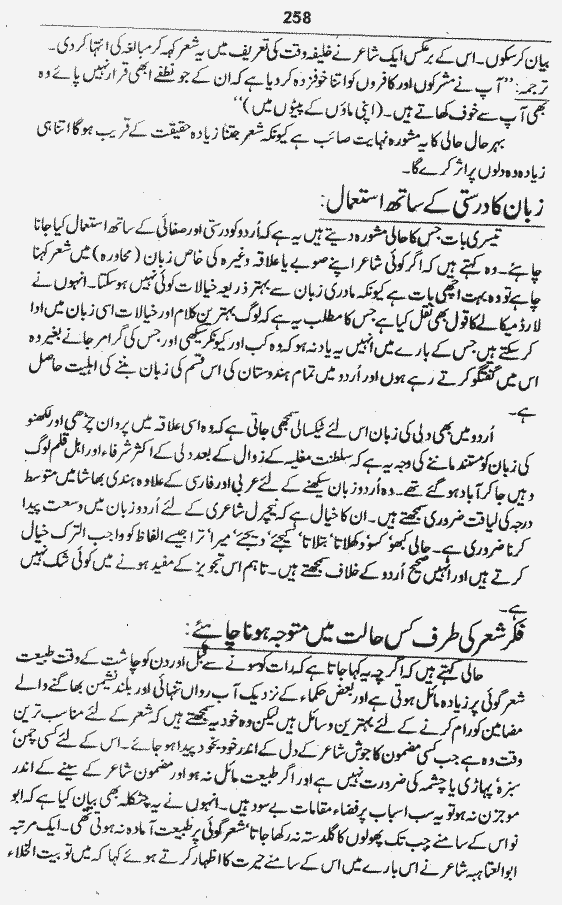 258
بیان کر سکوں۔ اس کے برعکس ایک شاعر نے خلیفہ وقت کی تعریف میں یہ شعر کہہ کر مبالغہ کی انتہا کر دی۔
ترجمہ: ’’آپ نے مشرکوں اور کافروں کو اتنا خوفزدہ کر دیا ہے کہ ان کے جو نطفے ابھی قرار نہیں پائے وہ
بھی آپ سے خوف کھاتے ہیں۔ (اپنی ماؤں کے پیٹوں میں)‘‘
بہرحال حالی کا یہ مشورہ نہایت صائب ہے کیونکہ شعر جتنا زیادہ حقیقت کے قریب ہو گا اتنا ہی
زیادہ وہ دلوں پر اثر کرے گا۔
زبان کا درستی کے ساتھ استعمال:
تیسری بات جس کا حالی مشورہ دیتے ہیں یہ ہے کہ اُردو کو درستی اور صفائی کے ساتھ استعمال کیا جانا
چاہئے۔ وہ کہتے ہیں کہ اگر کوئی شاعر اپنے صوبے یا علاقہ وغیرہ کی خاص زبان (محاورہ) میں شعر کہنا
چاہے تو وہ بہت اچھی بات ہے کیونکہ مادری زبان سے بہتر ذریعہ خیالات کوئی نہیں ہو سکتا۔ انہوں نے
لارڈ میکالے کا قول بھی نقل کیا ہے جس کا مطلب یہ ہے کہ لوگ بہترین کلام اور خیالات اسی زبان میں ادا
کر سکتے ہیں جس کے بارے میں انہیں یہ یاد نہ ہو کہ وہ کب اور کیونکر سیکھی اور جس کی گرامر جانے بغیر وہ
اس میں گفتگو کرتے رہے ہوں اور اُردو میں تمام ہندوستان کی اس قسم کی زبان بننے کی اہلیت حاصل
ہے۔
اُردو میں بھی دہلی کی زبان اس لئے ٹیکسالی سمجھی جاتی ہے کہ وہ اسی علاقہ میں پروان چڑھی اور لکھنو
کی زبان کو مستند ماننے کی وجہ یہ ہے کہ سلطنت مغلیہ کے زوال کے بعد دلی کے اکثر شرفاء اور اہل قلم لوگ
وہیں جا کر آباد ہو گئے تھے۔ وہ اُردو زبان سیکھنے کے لئے عربی اور فارسی کے علاوہ ہندی بھاشا میں متوسط
درجہ کی لیاقت ضروری سمجھتے ہیں۔ ان کا خیال ہے کہ نیچرل شاعری کے لئے اُردو زبان میں وسعت پیدا
کرنا ضروری ہے۔ حالی کبھو‘ کسو‘ دکھلاتا‘ بتلاتا‘ کیجئے‘ دیجئے‘ میرا‘ ترا جیسے الفاظ کو واجب الترک خیال
کرتے ہیں اور انہیں صحیح اُردو کے خلاف سمجھتے ہیں۔ تاہم اس تجویز کے مفید ہونے میں کوئی شک نہیں
ہے۔
فکر شعر کی طرف کس حالت میں متوجہ ہونا چاہئے:
حالی کہتے ہیں کہ اگرچہ یہ کہا جاتا ہے کہ رات کو سونے سے قبل اور دن کو چاشت کے وقت طبیعت
شعر گوئی پر زیادہ مائل ہوتی ہے اور بعض حکماء کے نزدیک آب رواں تنہائی اور بلند نشیمن بھاگنے والے
مضامین کو رام کرنے کے لئے بہترین وسائل ہیں لیکن وہ خود یہ سمجھتے ہیں کہ شعر کے لئے مناسب ترین
وقت وہ ہے جب کسی مضمون کا جوش شاعر کے دل کے اندر خود بخود پیدا ہو جائے۔ اس کے لئے کسی چمن‘
سبزہ‘ پہاڑی یا چشمہ کی ضرورت نہیں ہے اور اگر طبیعت مائل نہ ہو اور مضمون شاعر کے سینے کے اندر
موجزن نہ ہو تو یہ سب اسباب پر فضاء مقامات بے سود ہیں۔ انہوں نے یہ چٹکلہ بھی بیان کیا ہے کہ ابو
نواس کے سامنے جب تک پھولوں کا گلدستہ نہ رکھا جاتا‘ شعر گوئی پر طبیعت آمادہ نہ ہوتی تھی۔ ایک مرتبہ
ابو العتاہیہ شاعر نے اس بارے میں اس کے سامنے حیرت کا اظہار کرتے ہوئے کہا کہ میں تو بیت الخلاء